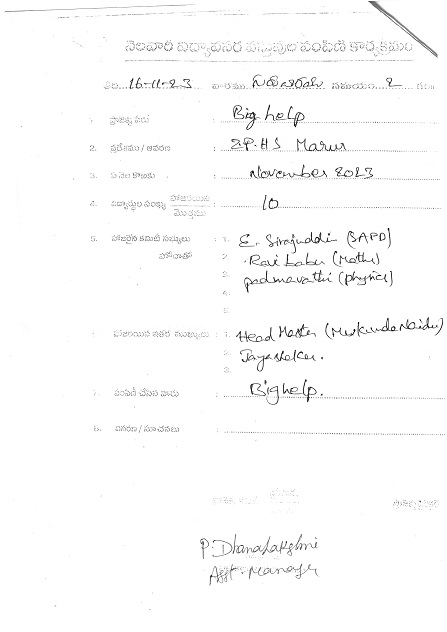 నెలవారి విద్యావసర వస్తువుల పంపిణి కార్యక్రమం
తేది. 16-11-23 వారము గురువారము సమయం 2 గం॥
1. ప్రాజెక్టు పేరు : Big help
2. ప్రదేశము / ఆవరణ : Z.P.H.S Marur
3. ఏ నెల కొరకు : November 2023
4. విద్యార్థుల సంఖ్య హాజరయిన / మొత్తము : 10
5. హాజరైన కమిటి సభ్యులు : 1. E. Sirajuddin (SAPD)
హోదాతో 2. Ravi Babu (Maths)
3. padmavathi (physics)
4.
5.
హాజరయిన ఇతర ముఖ్యులు : 1. Head Master (Mukunda Naidu)
2. Jayashekar.
3.
7. పంపిణి చేసిన వారు : Big help.
8. వివరణ / సూచనలు :
P. Dhanalakshmi
Asst. Manager